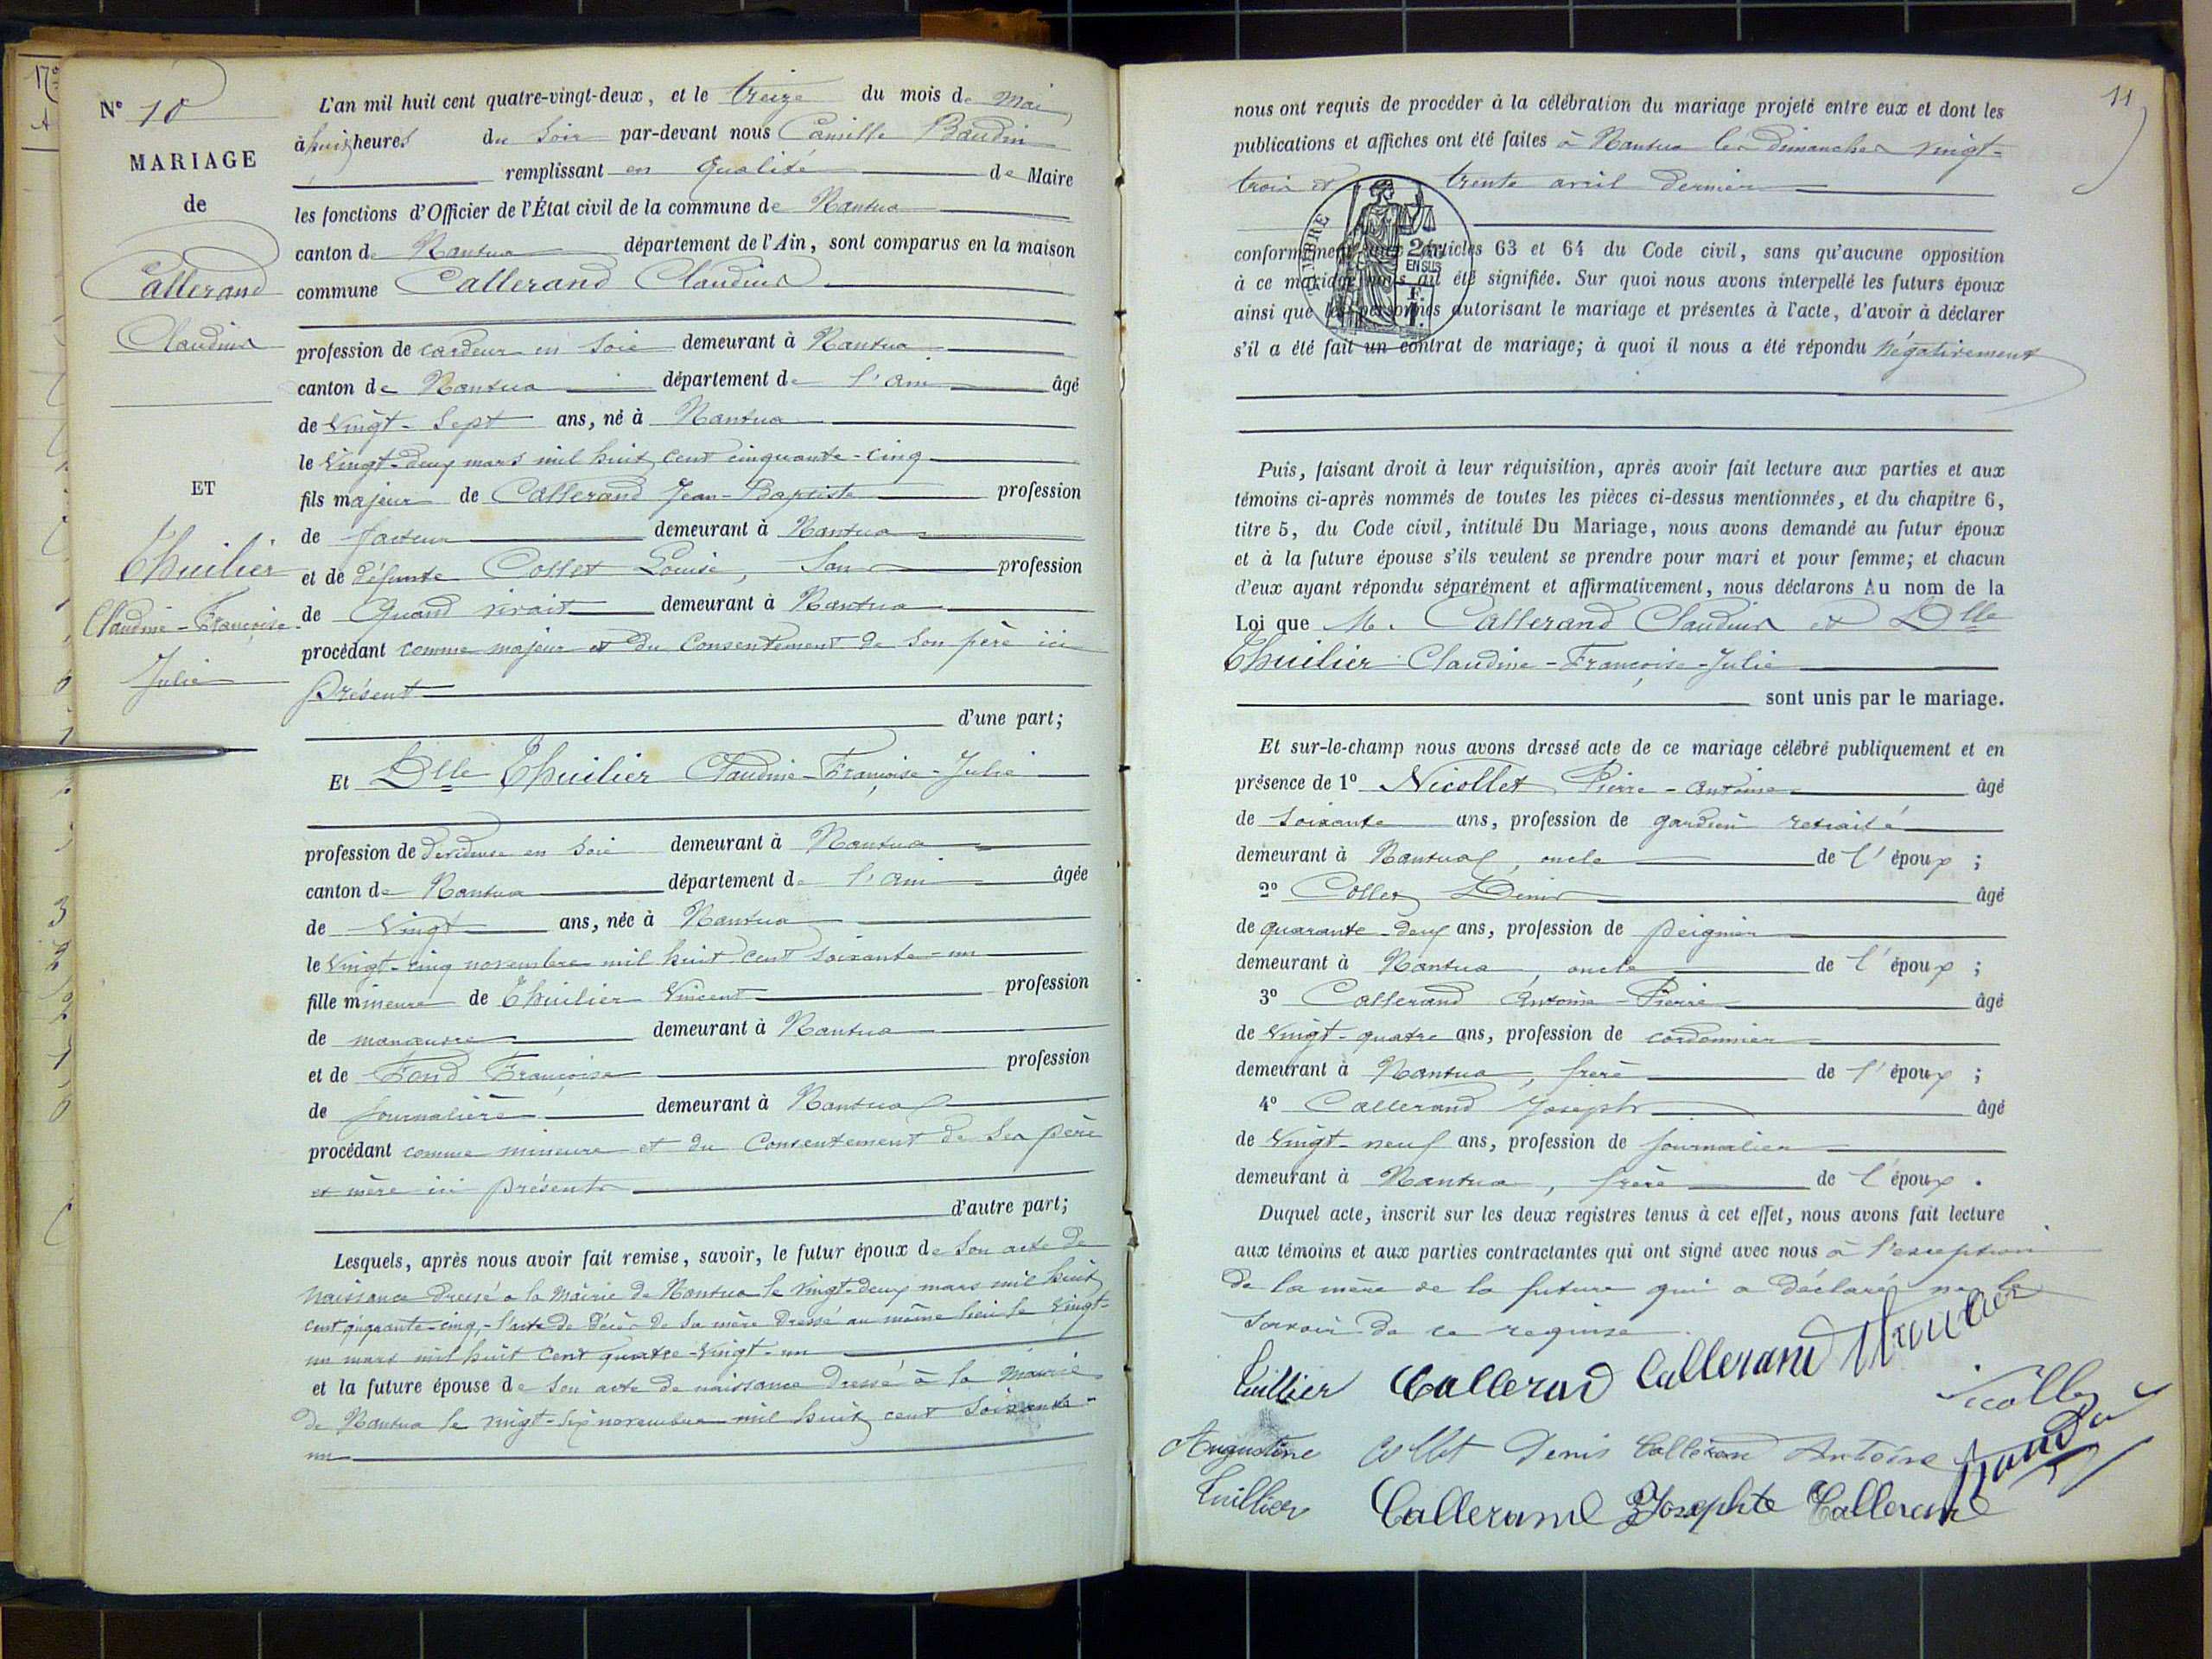 N° 10
MARIAGE
de
Callerand
Claudius
ET
Thuilier
Claudine-Françoise
Julie
L'an mil huit cent quatre-vingt-deux, et le treize du mois de Mai
à huit heures du soir par-devant nous Camille Baudin
remplissant en qualité de Maire
les fonctions d'Officier de l'État civil de la commune de Nantua
canton de Nantua département de l'Ain, sont comparus en la maison
commune Callerand Claudius
profession de cardeur en soie demeurant à Nantua
canton de Nantua département de l'Ain âgé
de vingt-sept ans, né à Nantua
le vingt-deux mars mil huit cent cinquante-cinq
fils majeur de Callerand Jean-Baptiste profession
de facteur demeurant à Nantua
et de défunte Collet Louise, sans profession
de quand vivait demeurant à Nantua
procédant comme majeur et du consentement de son père ici
présent
d'une part;
Et Dlle Thuilier Claudine-Françoise-Julie
profession de dévideuse en soie demeurant à Nantua
canton de Nantua département de l'Ain âgée
de vingt ans, née à Nantua
le vingt-cinq novembre mil huit cent soixante-un
fille mineure de Thuilier Vincent profession
de manœuvre demeurant à Nantua
et de Fond Françoise profession
de journalière demeurant à Nantua
procédant comme mineure et du consentement de ses père
et mère ici présents
d'autre part;
Lesquels, après nous avoir fait remise, savoir, le futur époux de son acte de
naissance dressé à la Mairie de Nantua le vingt-deux mars mil huit
cent cinquante-cinq, - l'acte de décès de sa mère dressé au même lieu le vingt-
un mars mil huit cent quatre-vingt-un
et la future épouse de son acte de naissance dressé à la Mairie
de Nantua le vingt-six novembre mil huit cent soixante-
un
11
nous ont requis de procéder à la célébration du mariage projeté entre eux et dont les
publications et affiches ont été faites à Nantua les dimanches vingt-
trois et trente avril dernier
TIMBRE
2/10 EN SUS
1 F.
conformément aux articles 63 et 64 du Code civil, sans qu'aucune opposition
à ce mariage nous ait été signifiée. Sur quoi nous avons interpellé les futurs époux
ainsi que les personnes autorisant le mariage et présentes à l'acte, d'avoir à déclarer
s'il a été fait un contrat de mariage; à quoi il nous a été répondu négativement
Puis, faisant droit à leur réquisition, après avoir fait lecture aux parties et aux
témoins ci-après nommés de toutes les pièces ci-dessus mentionnées, et du chapitre 6,
titre 5, du Code civil, intitulé Du Mariage, nous avons demandé au futur époux
et à la future épouse s'ils veulent se prendre pour mari et pour femme; et chacun
d'eux ayant répondu séparément et affirmativement, nous déclarons Au nom de la
Loi que M. Callerand Claudius et Dlle
Thuilier Claudine-Françoise-Julie
sont unis par le mariage.
Et sur-le-champ nous avons dressé acte de ce mariage célébré publiquement et en
présence de 1° Nicollet Pierre-Antoine âgé
de soixante ans, profession de gardien retraité
demeurant à Nantua, oncle de l'époux ;
2° Collet Denis âgé
de quarante-deux ans, profession de peignier
demeurant à Nantua, oncle de l'époux ;
3° Callerand Antoine-Pierre âgé
de vingt-quatre ans, profession de cordonnier
demeurant à Nantua, frère de l'époux ;
4° Callerand Joseph âgé
de vingt-neuf ans, profession de journalier
demeurant à Nantua, frère de l'époux.
Duquel acte, inscrit sur les deux registres tenus à cet effet, nous avons fait lecture
aux témoins et aux parties contractantes qui ont signé avec nous à l'exception
de la mère de la future qui a déclaré ne le
savoir de ce requise.
tuillier Callerand Callerand
Nicollet
Augustine Collet Denis Callerand Antoine Baudin
tuillier Callerand Josephte Callerand